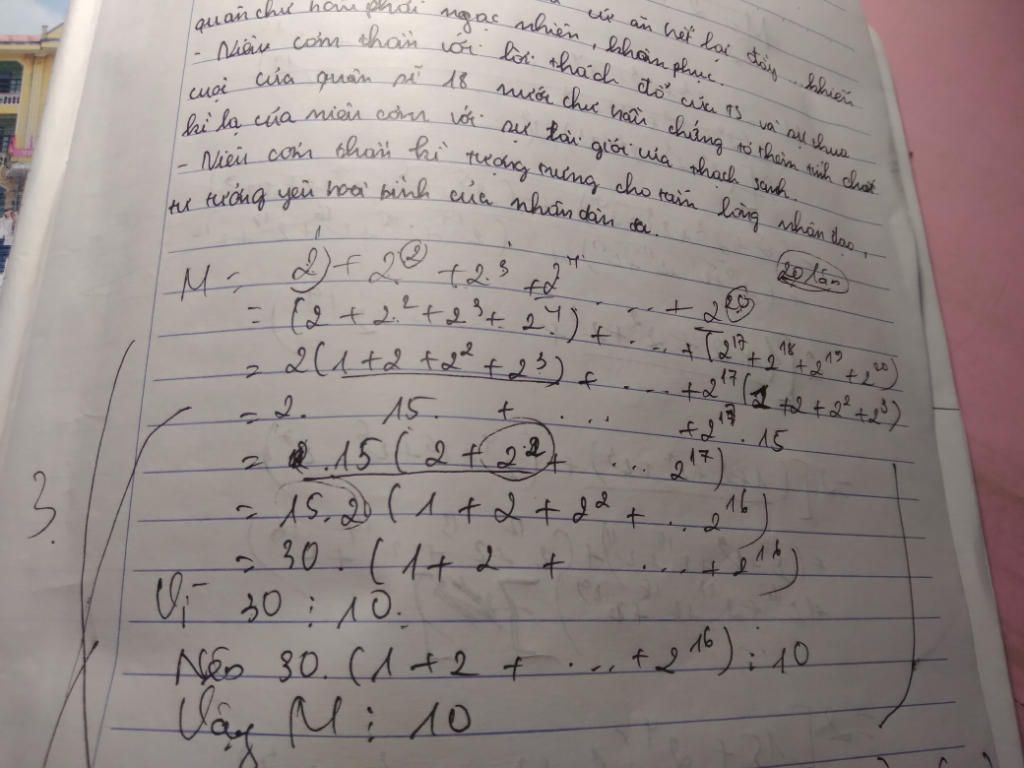 quân chư hầu phải ngạc nhiên, khâm phục.
- Niêu cơm thần với lời thách đố của TS và sự thua
cuộc của quân sĩ 18 nước chư hầu chứng tỏ thêm tính chất
kì lạ của niêu cơm với sự tài giỏi của thạch sanh.
- Niêu cơm thần kì tượng trưng cho tấm lòng nhân đạo,
tư tưởng yêu hoà bình của nhân dân ta.
20 lần
M = 2 + 2² + 2³ + 2⁴ ... + 2²⁰
= (2 + 2² + 2³ + 2⁴) + ... + (2¹⁷ + 2¹⁸ + 2¹⁹ + 2²⁰)
= 2(1 + 2 + 2² + 2³) + ... + 2¹⁷(1 + 2 + 2² + 2³)
= 2. 15. + ... + 2¹⁷ . 15
= .15 (2 + 2² + ... 2¹⁷)
3. = 15.2 (1 + 2 + 2² + .. 2¹⁶)
= 30 . (1 + 2 + ... + 2¹⁶)
Vì 30 ⋮ 10.
Nên 30. (1 + 2 + ... + 2¹⁶) ⋮ 10
Vậy M ⋮ 10